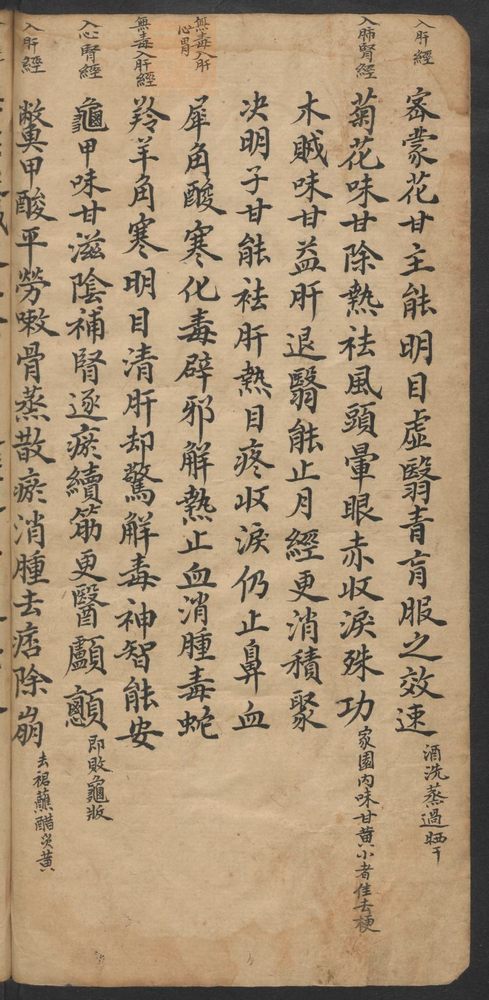 入肝經
密蒙花甘主能明目虛翳青盲服之效速
酒洗蒸過晒干
入肺腎經
菊花味甘除熱祛風頭暈眼赤收淚殊功
家園內味甘黄小者佳去梗
木賊味甘益肝退翳能止月經更消積聚
决明子甘能祛肝熱目疼收淚仍止鼻血
無毒入肝心胃
犀角酸寒化毒辟邪解熱止血消腫毒蛇
無毒入肝經
羚羊角寒明目清肝却驚解毒神智能安
入心腎經
龜甲味甘滋陰補腎逐瘀續筋更醫顱顖
即敗龜版
入肝經
鱉甲酸平勞嗽骨蒸散瘀消腫去痞除崩
去裙蘸醋炙黄